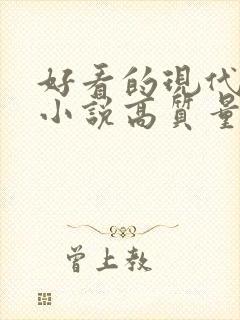 好看的現代
小說高質量
曾上教